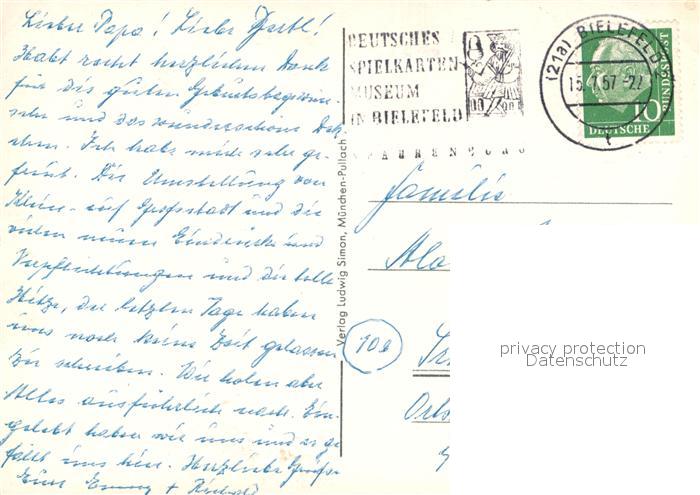 Lieber Papa! Liebe Bertl!
Habt recht herzlichen Dank
für die guten Geburtstagswün-
sche und das wunderschöne Deck-
chen. Ich habe mich sehr ge-
freut. Die Umstellung von
Klein- auf Großstadt und die
vielen neuen Eindrücke und
Verpflichtungen und die tolle
Hitze, die letzten Tage haben
uns noch keine Zeit gelassen
zu schreiben. Wir holen aber
Alles ausführlich nach. Ein-
gelebt haben wir uns und es ge-
fällt uns hier. Herzliche Grüße
Eure + Richard
DEUTSCHES
SPIELKARTEN-
MUSEUM
IN BIELEFELD
(21a) BIELEFELD
57
10
DEUTSCHE
BUNDESPOST
Verlag Ludwig Simon, München-Pullach
Familie
privacy protection
Datenschutz